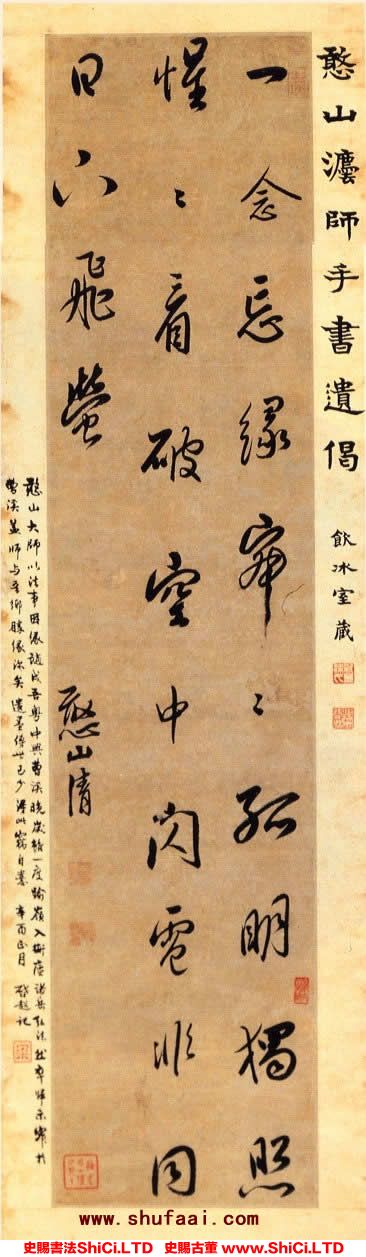 憨山灋師手書遺偈
飲冰室藏
一念忘緣寂〻孤明獨照
惺〻看破空中閃電非同
日下飛螢
憨山清
憨山大師以法事因緣謫戍吾粵中興曹溪晚歲
曹溪蓋師与吾鄉勝緣深矣遺墨傳世已少得此竊自喜 辛酉正月 啓超記
www.shufaai.com
史賜書法ShiCi.LTD 史賜古董 www.ShiCi.LTD